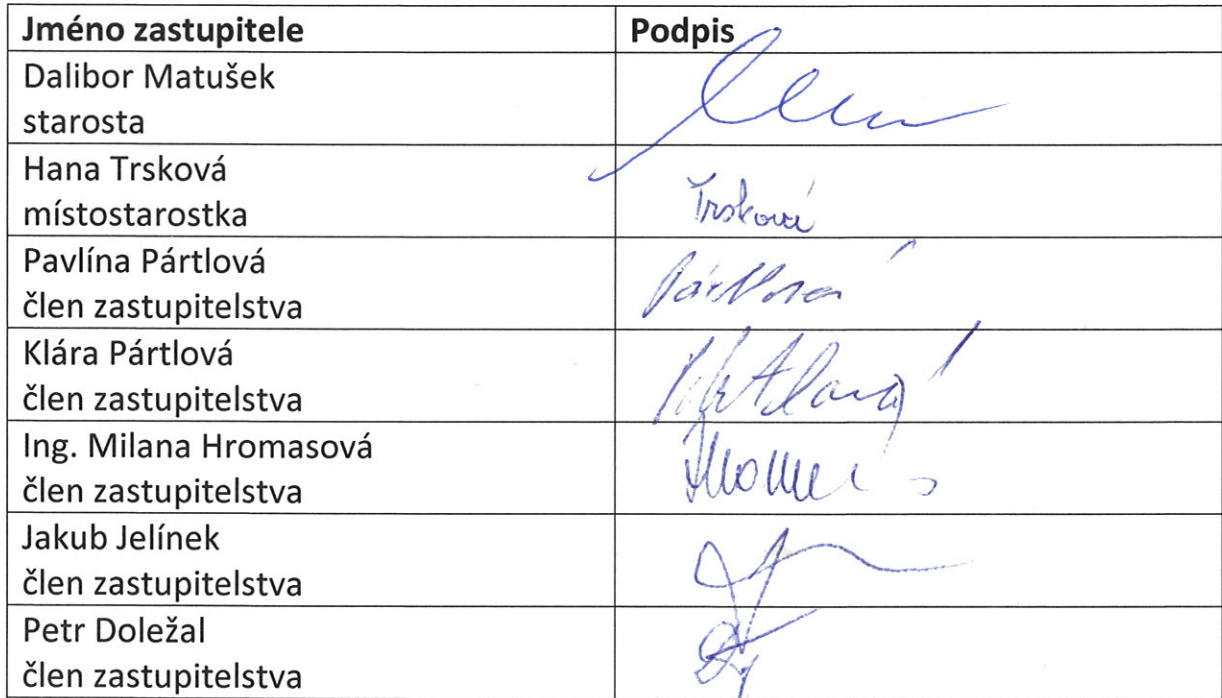 Jméno zastupitele Podpis
Dalibor Matušek
starosta
Hana Trsková
místostarostka
Trsková
Pavlína Pártlová
člen zastupitelstva
Pártlová
Klára Pártlová
člen zastupitelstva
Ing. Milana Hromasová
člen zastupitelstva
Jakub Jelínek
člen zastupitelstva
Petr Doležal
člen zastupitelstva